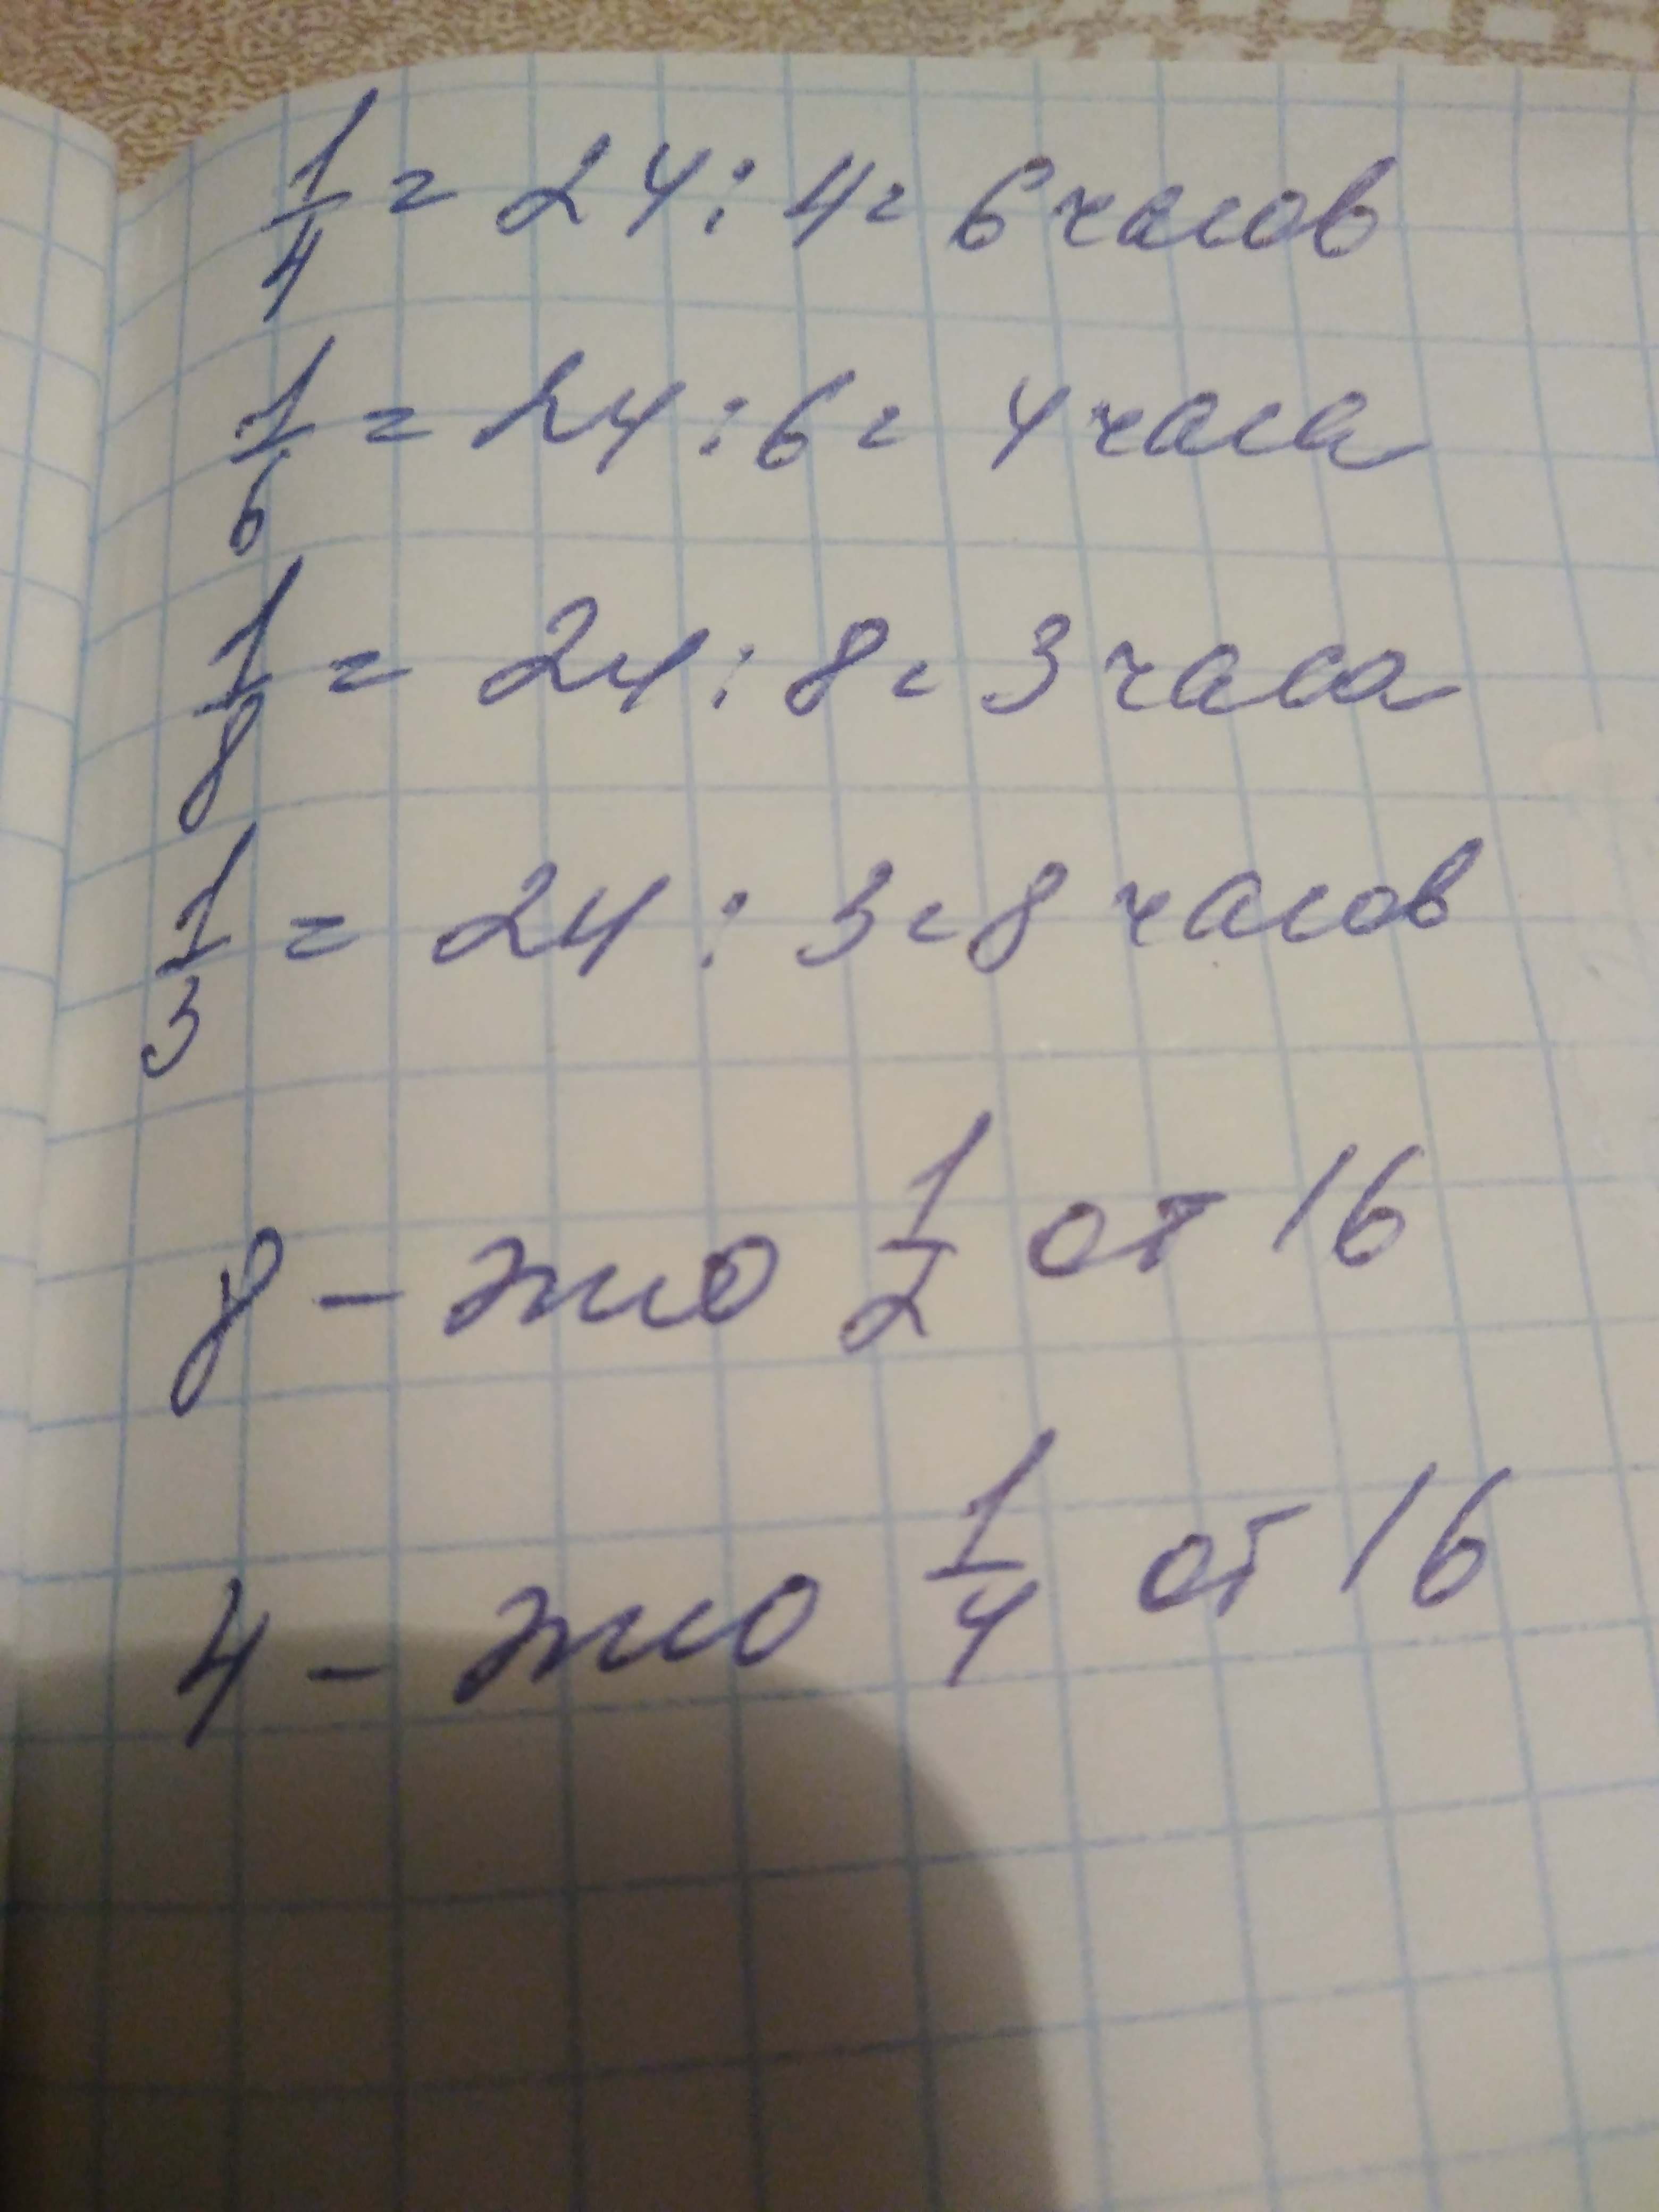 1/4 = 24 : 4 = 6 часов
1/6 = 24 : 6 = 4 часа
1/8 = 24 : 8 = 3 часа
1/3 = 24 : 3 = 8 часов
8 - это 1/2 от 16
4 - это 1/4 от 16